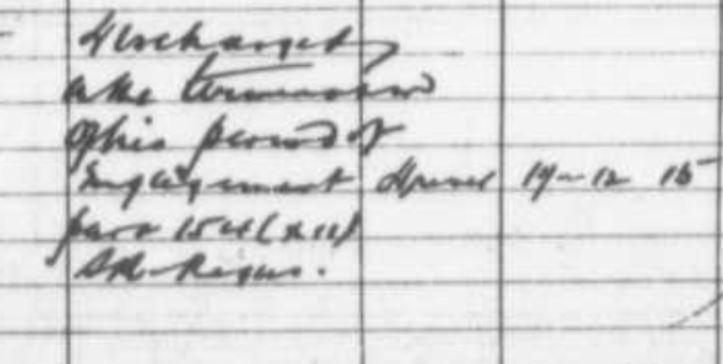 Discharged
at the termination
of his period of
Engagement 19-12 15
para 154 (XII)
S.R. Regns.